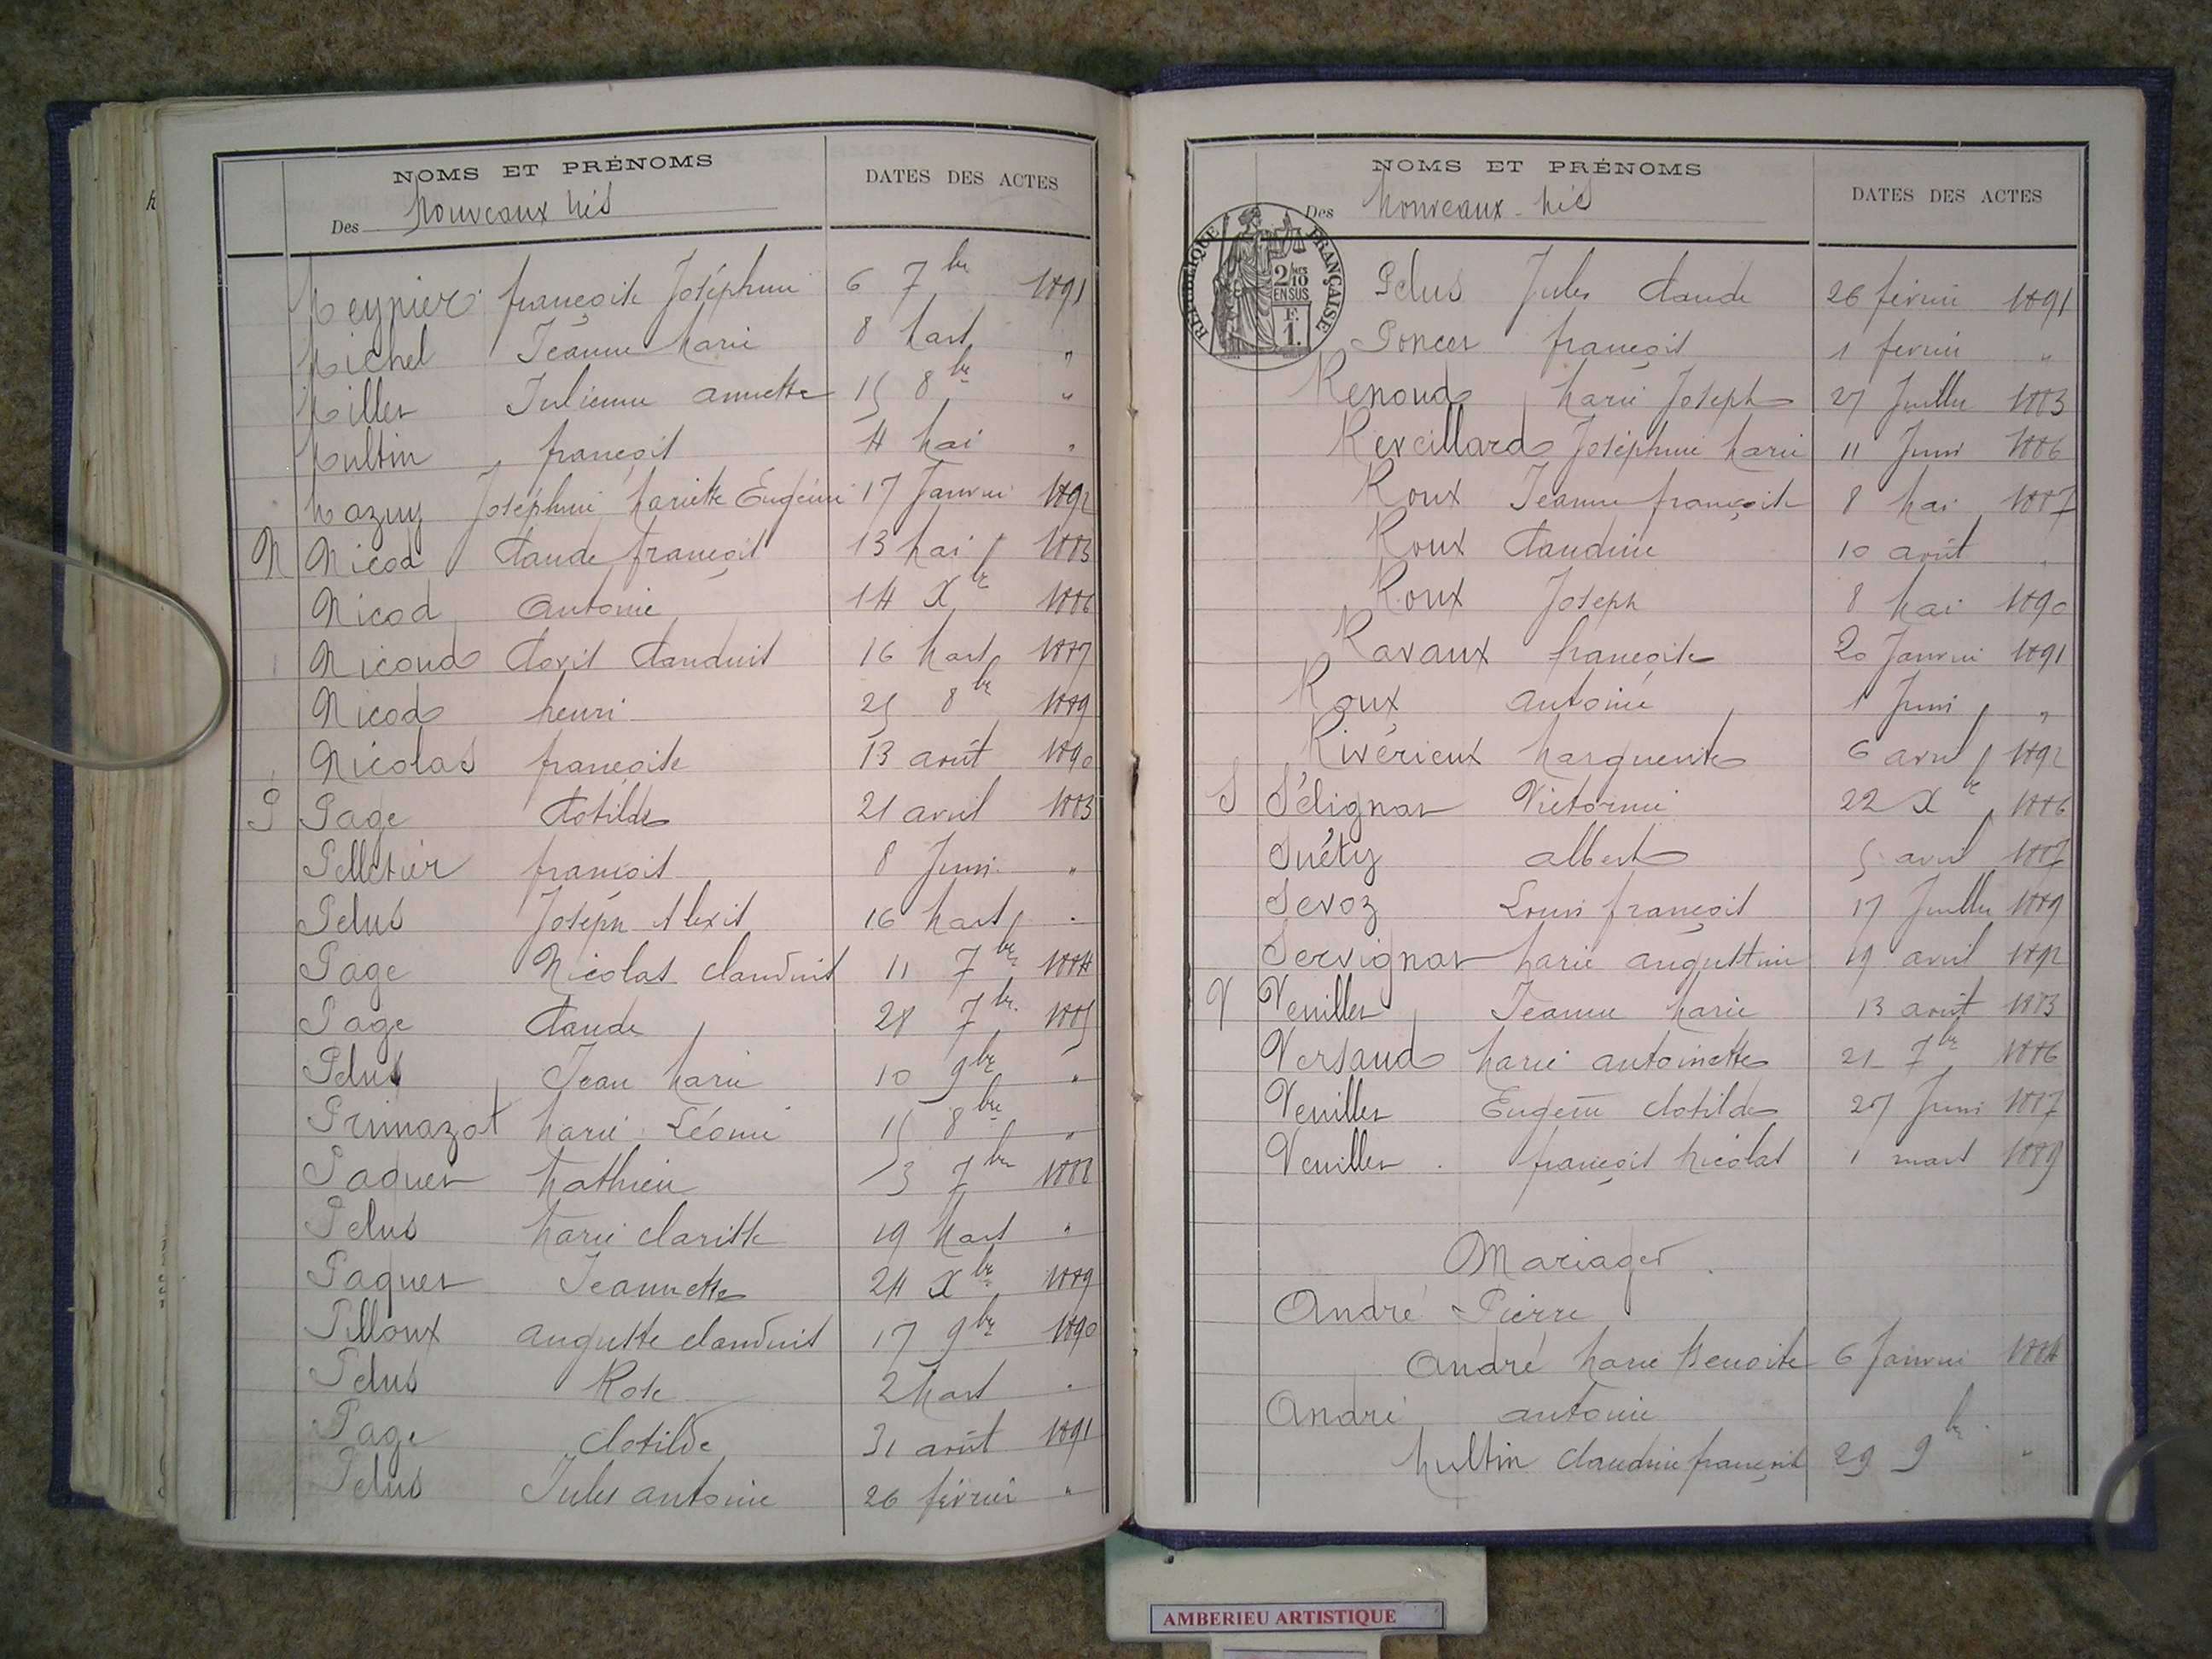 NOMS ET PRÉNOMS
DATES DES ACTES
Des Nouveaux nés
Meynier françoise Joséphine 6 7bre 1891
Michel Jeanne Marie 8 Mars "
Millet Julienne annette 15 8bre "
Multin françois 4 Mai "
Mazuy Joséphine Mariette Eugénie 17 Janvier 1892
N Nicod Claude françois 13 Mai 1883
Nicod Antoine 14 Xbre 1886
Nicoud Clovis Claudius 16 Mars 1887
Nicod henri 25 8bre 1889
Nicolas françoise 13 août 1890
P Page Clotilde 21 avril 1883
Pelletier françois 8 Juin "
Pelus Joseph Alexis 16 Mars "
Page Nicolas Claudius 11 7bre 1884
Page Claude 28 7bre 1885
Pelus Jean Marie 10 9bre "
Primazot Marie Léonie 15 8bre "
Paquet Mathieu 3 7bre 1888
Pelus Marie Clarisse 19 Mars "
Paquet Jeannette 24 Xbre 1889
Pilloux auguste Claudius 17 9bre 1890
Pelus Rose 2 Mars "
Page Clotilde 31 août 1891
Pelus Jules antoine 26 février "
NOMS ET PRÉNOMS
DATES DES ACTES
Des Nouveaux-nés
RÉPUBLIQUE FRANÇAISE
2/10 EN SUS
F. 1.
Pelus Jules Claude 26 février 1891
Poncet françois 1 février "
Renoud Marie Joseph 27 Juillet 1883
Reveillard Joséphine Marie 11 Juin 1886
Roux Jeanne françoise 8 Mai 1887
Roux Claudine 10 août "
Roux Joseph 8 Mai 1890
Ravaux françoise 20 Janvier 1891
Roux Antoine 1 Juin "
Rivérieux Marguerite 6 avril 1892
S Sélignat Victorine 22 Xbre 1886
Suéty albert 5 avril 1887
Sevoz Louis françois 17 Juillet 1889
Servignat Marie augustine 19 avril 1892
V Veuillet Jeanne Marie 13 août 1883
Versaud Marie antoinette 21 7bre 1886
Veuillet Eugénie Clotilde 27 Juin 1887
Veuillet françois Nicolas 1 mars 1889
Mariages
André Pierre
André Marie Benoite 6 Janvier 1884
André antoine
Multin Claudine françoise 29 9bre "
AMBERIEU ARTISTIQUE